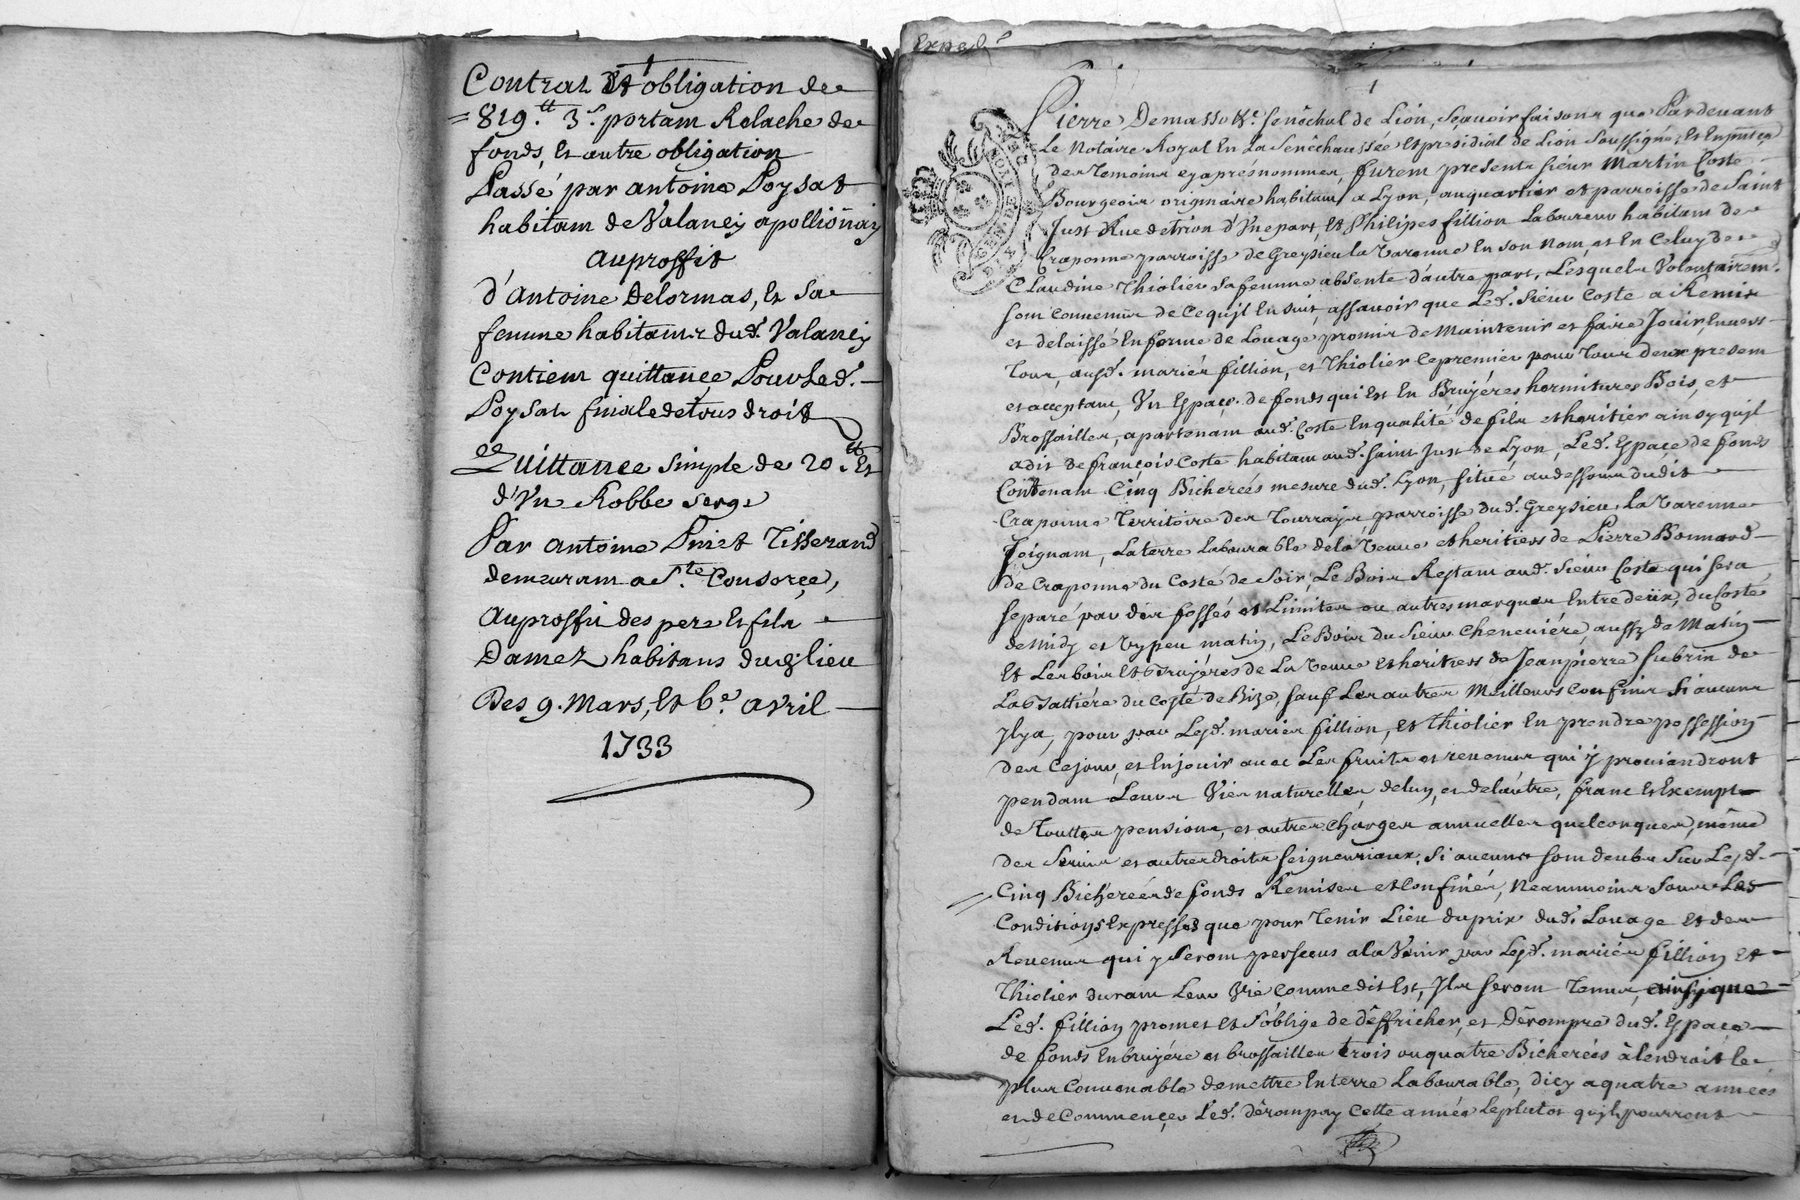 Contrat Et obligation de
= 819.tt 3.s portant Relache de
fonds, Et autre obligation
Passé par antoine Poysat
habitant de Valaney apollionnay
auproffit
d'Antoine Delormas, Et Sa
femme habitants dud. Valaney
Contient quittance Pour Led.
Poysat finale detous droits
Quittance Simple de 20.tt Et
d'Vn Robbe Serge
Par antoine Tisserand
demeurant a S.te Consorçe,
auproffit des pere Et fils
Damez habitans dud. lieu
Des 9. Mars, Et 6.e avril
1733
Exped.é
1
Pierre Demasso &c. Senéchal de Lion, Sçavoir faisons que Pardevant
Le Notaire Royal En La Senêchaussée Et presidial de Lion Soussigné, Et En presence
des Temoins cy aprés nommes, furent presents Sieur Martin Coste
Bourgeois originaire habitant a Lyon, auquartier et parroisse de Saint
Just Rue de trion d'Vne part, Et Philipes fillion Laboureur habitant de
Craponne parroisse de Greysieu la Varenne En son Nom, et En Celuy de
Claudine Thiolier Sa femme absente d'autre part, Lesquels Volontairem.t
sont Convenus de Cequ'jl En suit, assavoir que Led. Sieur Coste a Remis
et delaissé En forme de Louage promis de Maintenir et faire Jouir Envers
Tous, ausd. mariés fillion, et Thiolier Cepremier pour Tous deux present
et acceptant, Vn Espace de fonds qui Est En Bruyéres hermitures Bois, et
Brossailles, apartenant aud. Coste En qualité de fils et heritier ainsy qu'jl
a dit de françois Coste habitant aud. Saint Just de Lyon, Led. Espace de fonds
Contenant Cinq Bicherées mesure dud. Lyon, situé audessous dudit
Craponne Territoire des Tourrajes, parroisse dud. Greysieu La Varenne
Joignant, La terre Labourable de la Veuve et heritiers de Pierre Bonnard
de Craponne du Costé de Soir, Le Bois Restant aud. Sieur Coste qui sera
Separé par des fossés et Limites ou autres marques Entre deux, du Costé
de Midy et Vn peu matin, Le Bois du Sieur Cheneviére aussy de Matin
Et Les bois Et Bruyéres de La Veuve et heritiers de Jean pierre fubrin de
La du Costé de Bize, Sauf Les autres Meilleurs Confins Si aucuns
Jl y a, pour par Lesd. mariés fillion, Et Thiolier En prendre possession
des Cejour, et En jouir avec Les fruits et revenus qui y proviendront
pendant Leurs Vies naturelles, deluy, et de l'autre, franc Et Exempt
de Touttes pensions, et autres Charges annuelles quelconques, même
des Servis et autres droits Seigneuriaux, Si aucuns sont deubs Sur Lesd.
Cinq Bicherées de fonds Remises et Confinés, Neanmoins Sous Les
Conditions Expresses que pour Tenir Lieu du prix dud. Louage Et des
Revenus qui y Seront perceus a la Venir par Lesd. mariés fillion Et
Thiolier durant Leur Vie Comme dit Est, Jls seront Tenus, ainsy que
Led. fillion promet Et S'oblige de déffricher, et Dérompre dud. Espace
de fonds En bruyére et brossailles trois ou quatre Bicherées à lendroit le
plus Convenable demettre En terre Labourable, dicy a quatre années
et de Commençer Led. dérompay Cette année Leplutot qu'jls pourront